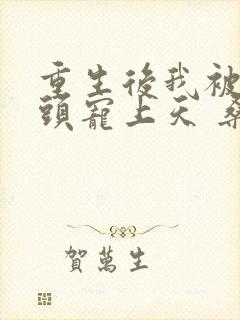 重生後我被
頭寵上天
賀萬生